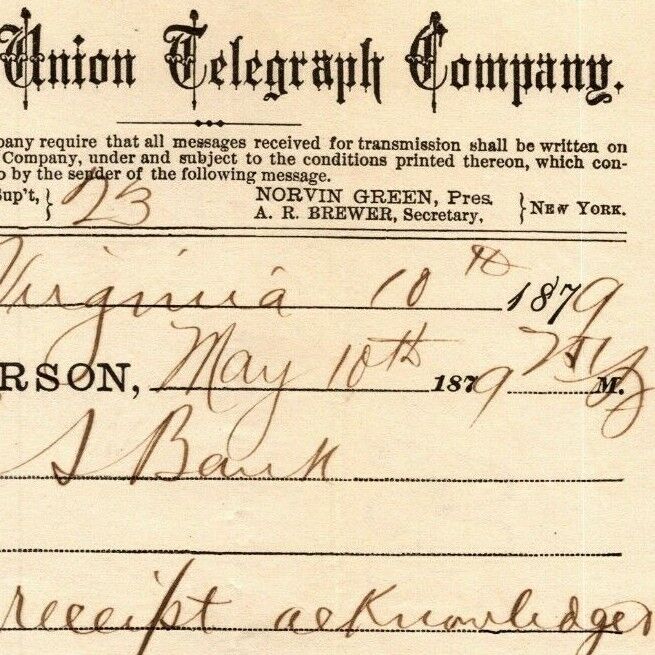 Union Telegraph Company.
pany require that all messages received for transmission shall be written on
Company, under and subject to the conditions printed thereon, which con-
o by the sender of the following message.
Sup't, } 23 NORVIN GREEN, Pres.
A. R. BREWER, Secretary, } NEW YORK.
Virginia 10th 1879
RSON, May 10th 1879 M.
S Bank
receipt acknowledged